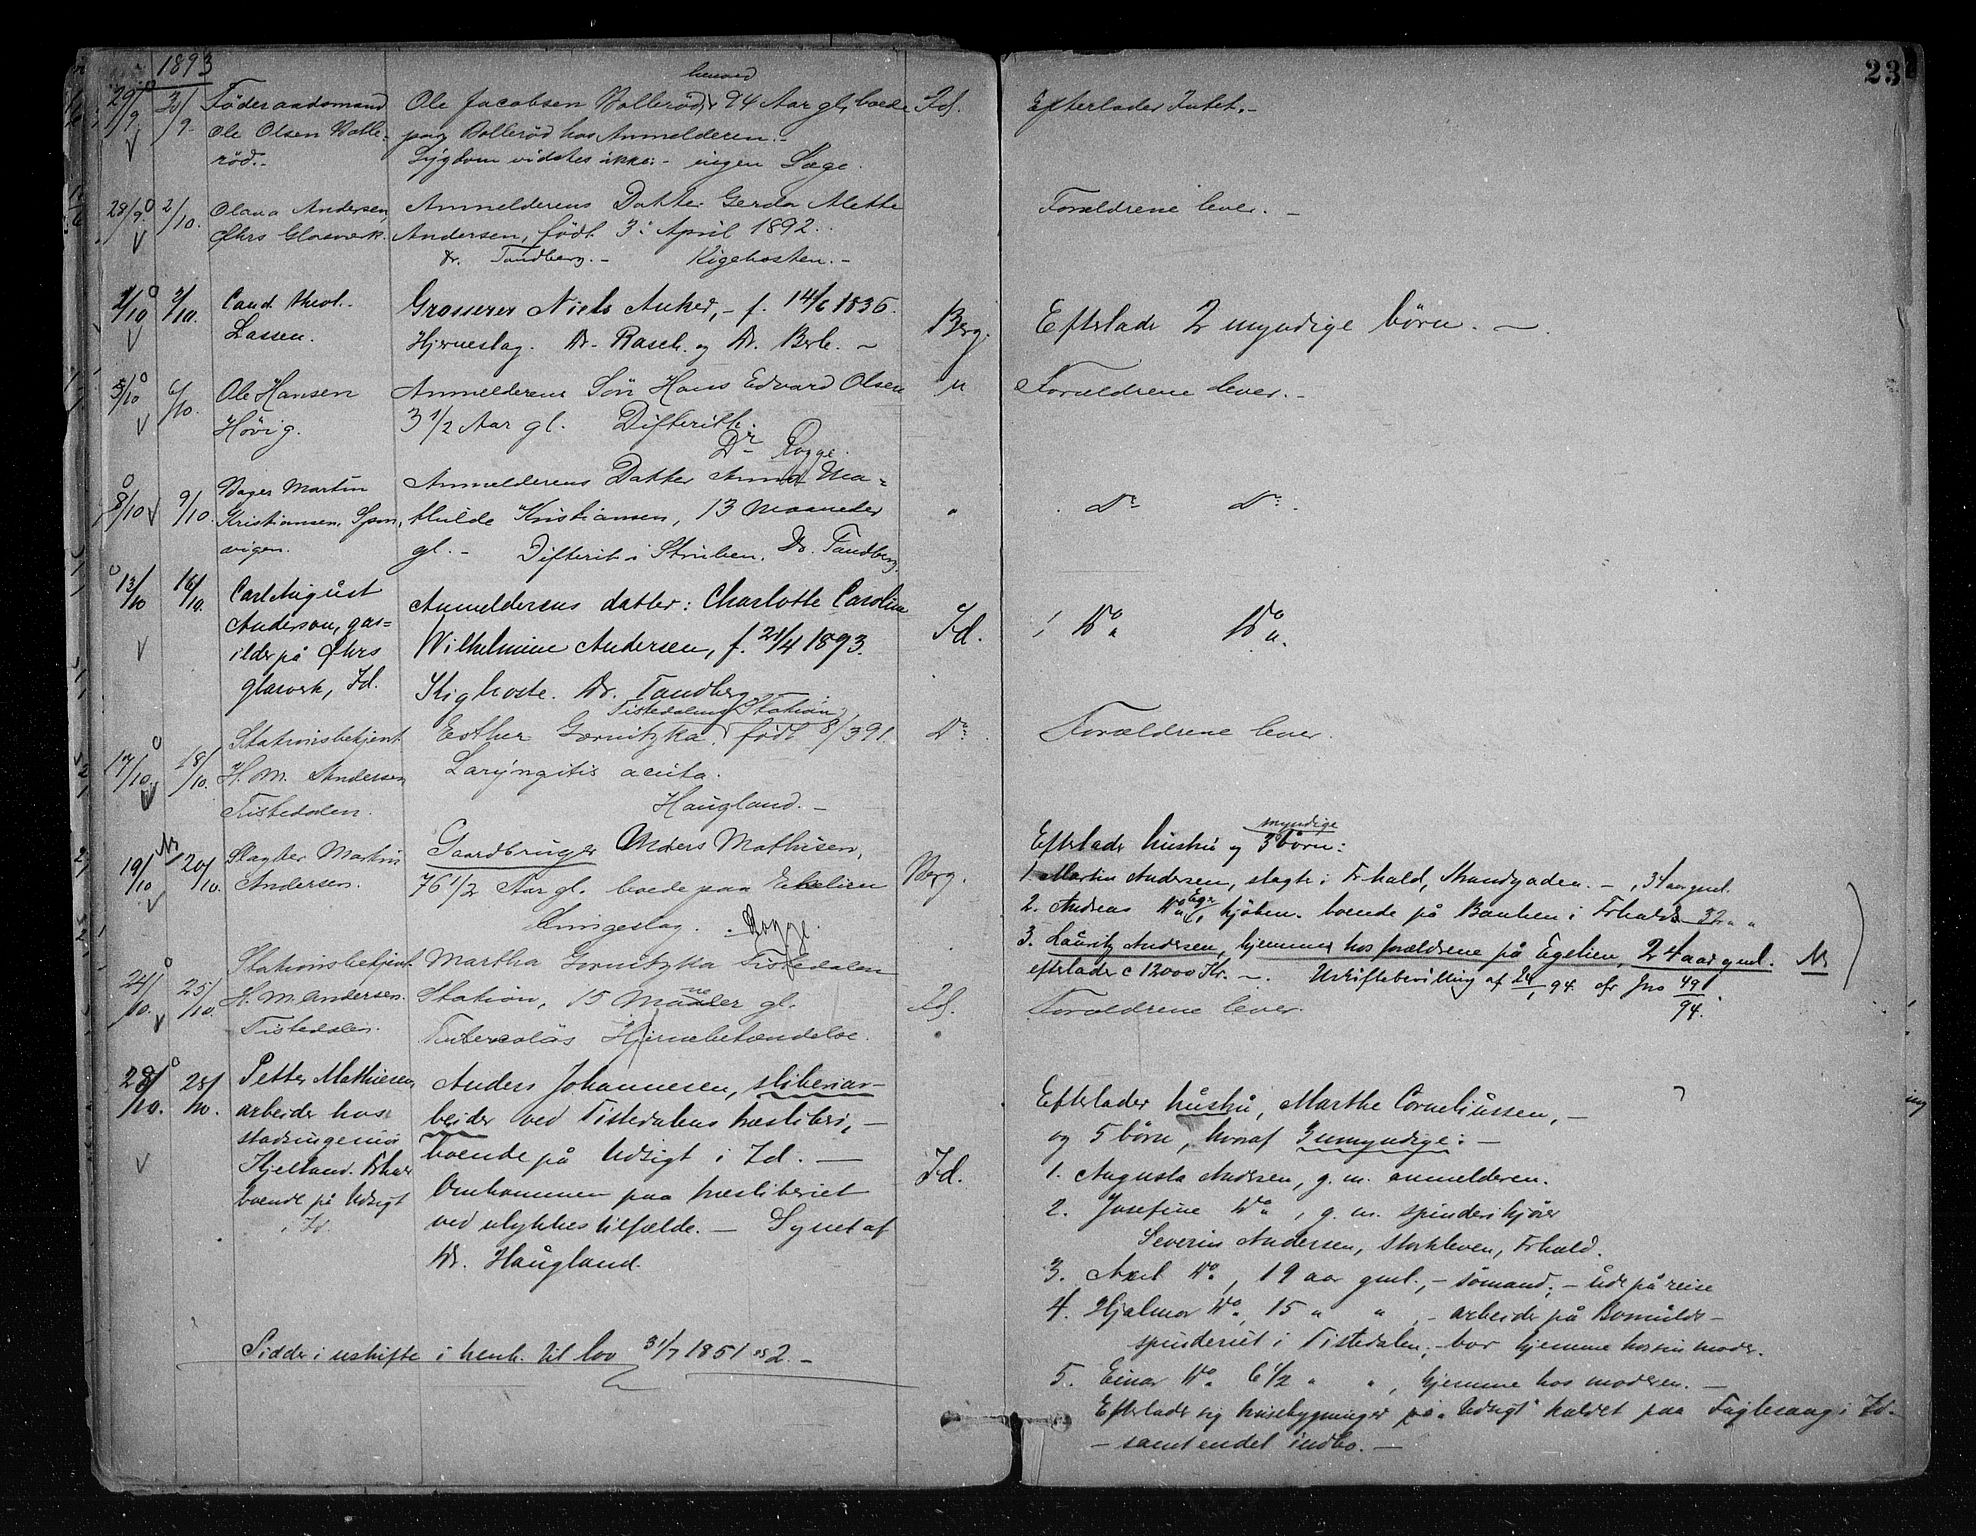 1893
23
29/9 30/9. Föderaadsmand Ole Jacobsen Bolleröd, 94 Aar gl, boede Id. Efterlader Intet.-
Ole Olsen Bolle- paa Bolleröd hos Anmelderen.-
röd.- Sygdom vidstes ikke:- ingen Læge.
28/9. 2/10. Olava Andersen, Anmelderens Datter Gerda Mette Forældrene lever.-
Ørs Glasværk. Andersen, født 3: April 1892.
Dr. Tandberg.- Kigehosten.-
1/10 3/10. Cand. theol. Grosserer Niels Anker,- f. 14/6 1836. Berg. Efterlader 2 myndige børn.-
Lassen. Hjerneslag. Dr. Rasch. og Dr. Berle.-
5/10 6/10. Ole Hansen Anmelderens Søn Hans Edvard Olsen " Forældrene lever.-
Høvig. 3 1/2 Aar gl. Difterith.
Dr Rogge.
8/10 9/10. Martin Anmelderens Datter Anna Ma=
Kristiansen, Spon- thilde Kristiansen, 13 Maaneder " Do Do.
vigen. gl.- Difterit i Struben. Dr. Tandberg.
13/10 16/10. Carl August Anmelderens datter: Charlotte Caroline
Anderson, gas= Wilhelmine Andersen, f. 21/4 1893. Id. Do Do.
ilder på Ørs
glasverk, Id. Kighoste. Dr. Tandberg
Tistedalens Station,
17/10. 18/10. Stationsbetjent Esther Gornitzka. født 8/3 91. Do. Forældrene lever.
H. M. Andersen Laryngitis acuta.
Tistedalen. Haugland.-
19/10 20/10. Slagter Martin Gaardbruger Anders Mathisen, Berg. Efterlader hustru og 3 myndige børn:
Andersen. 76 1/2 Aar gl. boede paa Eikelien 1. Martin Andersen, slagter i Frhald, Strandgaden.-, 34 aar gml.
Lungeslag. Rogge. 2. Andreas Do, kjøbm. boende på Banken i Frhald 32 " "
3. Lauritz Andersen, hjemme hos forældrene på Egelien, 24 aar gml. Nr
efterlader c 12000 Kr.- Uskiftebevilling af 24/1 94. cfr Jno 49/94.
24/10. 25/10. Stationsbetjent Martha Gornitzka Tistedalen Id. Forældrene lever.
H. M. Andersen. Station, 15 Maaneder gl.
Tistedalen. Tuberculøs Hjernebetændelse.
28/10. 28/10. Petter Mathiesen, Anders Johannesen, sliberiar- Efterlader hustru, Marthe Corneliussen,-
arbeider hos beider ved Tistedalens træsliberi,- og 5 børn, hvoraf 3 umyndige:-
stadsingeniør boende på Udsigt i Id.- Id. 1. Augusta Andersen, g. m. anmelderen.
Kjelland. Frhald Omkommen paa træsliberiet 2. Josefine Do, g. m. spinderikjører
boende på Udsigt ved ulykkestilfælde.- Synet af Severin Andersen, Storkleven, Frhald.
i Id. Dr. Haugland. 3. Axel Do, 19 aar gml.,- sømand,- ude på reise
4. Hjalmar Do, 15 " ",- arbeider på Bomulds-
Sidder i uskifte i henh. til lov 31/7 1851 § 2.- spinderiet i Tistedalen,- bor hjemme hos sin moder.
5. Einar Do. 6 1/2 " ", hjemme hos moderen.-
Efterlader sig husebygninger på "Udsigt" kaldet paa Fuglesang i Id.-
- samt endel indbo.-